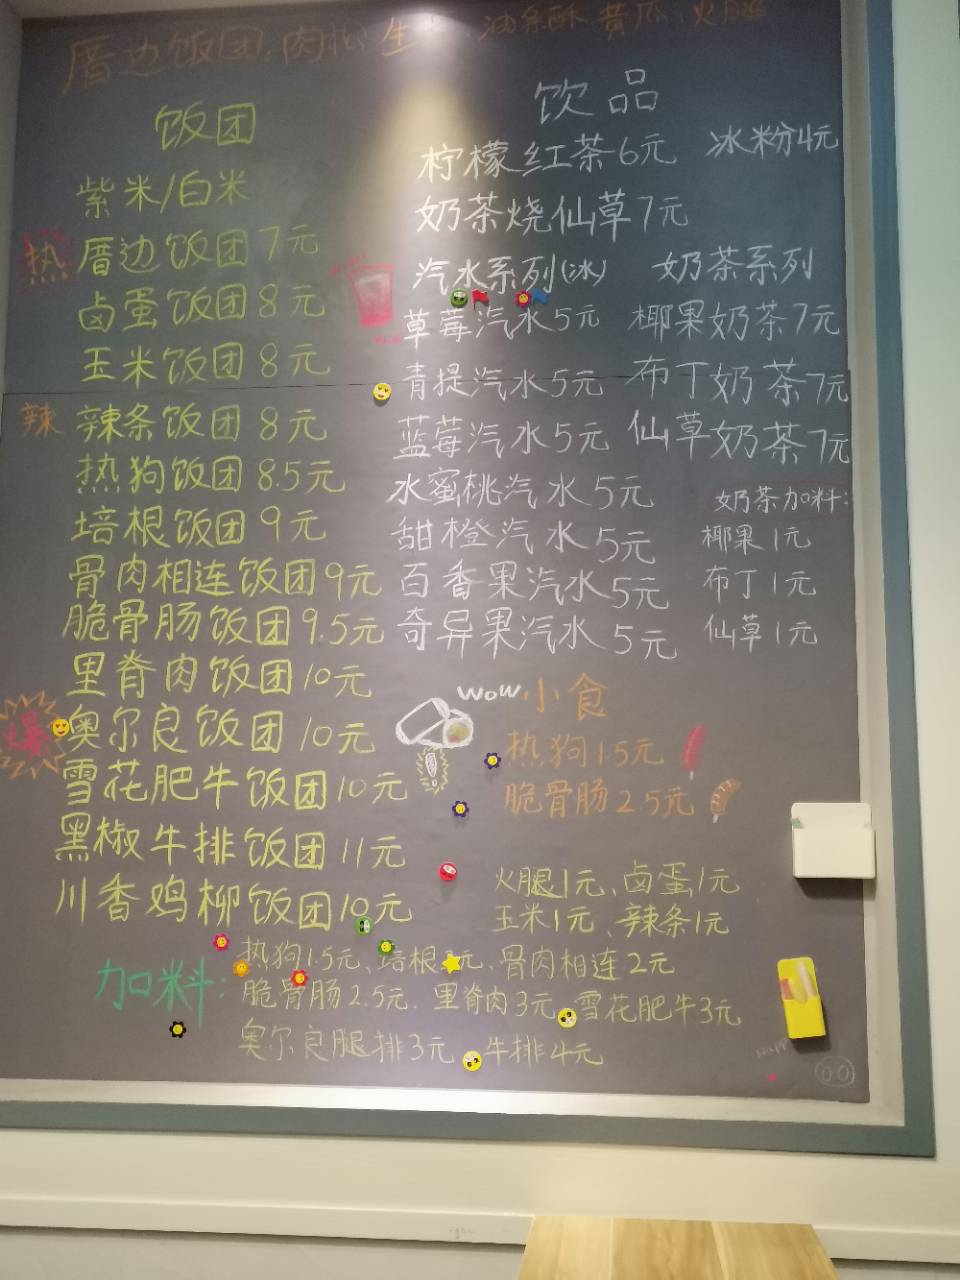 厝边饭团:肉松 生 油条酥 黄瓜 火腿
饭团
紫米/白米
热 厝边饭团7元
卤蛋饭团8元
玉米饭团8元
辣 辣条饭团8元
热狗饭团8.5元
培根饭团9元
骨肉相连饭团9元
脆骨肠饭团9.5元
里脊肉饭团10元
爆 奥尔良饭团10元
雪花肥牛饭团10元
黑椒牛排饭团11元
川香鸡柳饭团10元
饮品
柠檬红茶6元
冰粉4元
奶茶烧仙草7元
汽水系列(冰)
草莓汽水5元
青提汽水5元
蓝莓汽水5元
水蜜桃汽水5元
甜橙汽水5元
百香果汽水5元
奇异果汽水5元
奶茶系列
椰果奶茶7元
布丁奶茶7元
仙草奶茶7元
奶茶加料:
椰果1元
布丁1元
仙草1元
wow 小食
热狗1.5元
脆骨肠2.5元
加料:
火腿1元、卤蛋1元
玉米1元、辣条1元
热狗1.5元、培根 元、骨肉相连2元
脆骨肠2.5元.里脊肉3元、雪花肥牛3元
奥尔良腿排3元、牛排4元